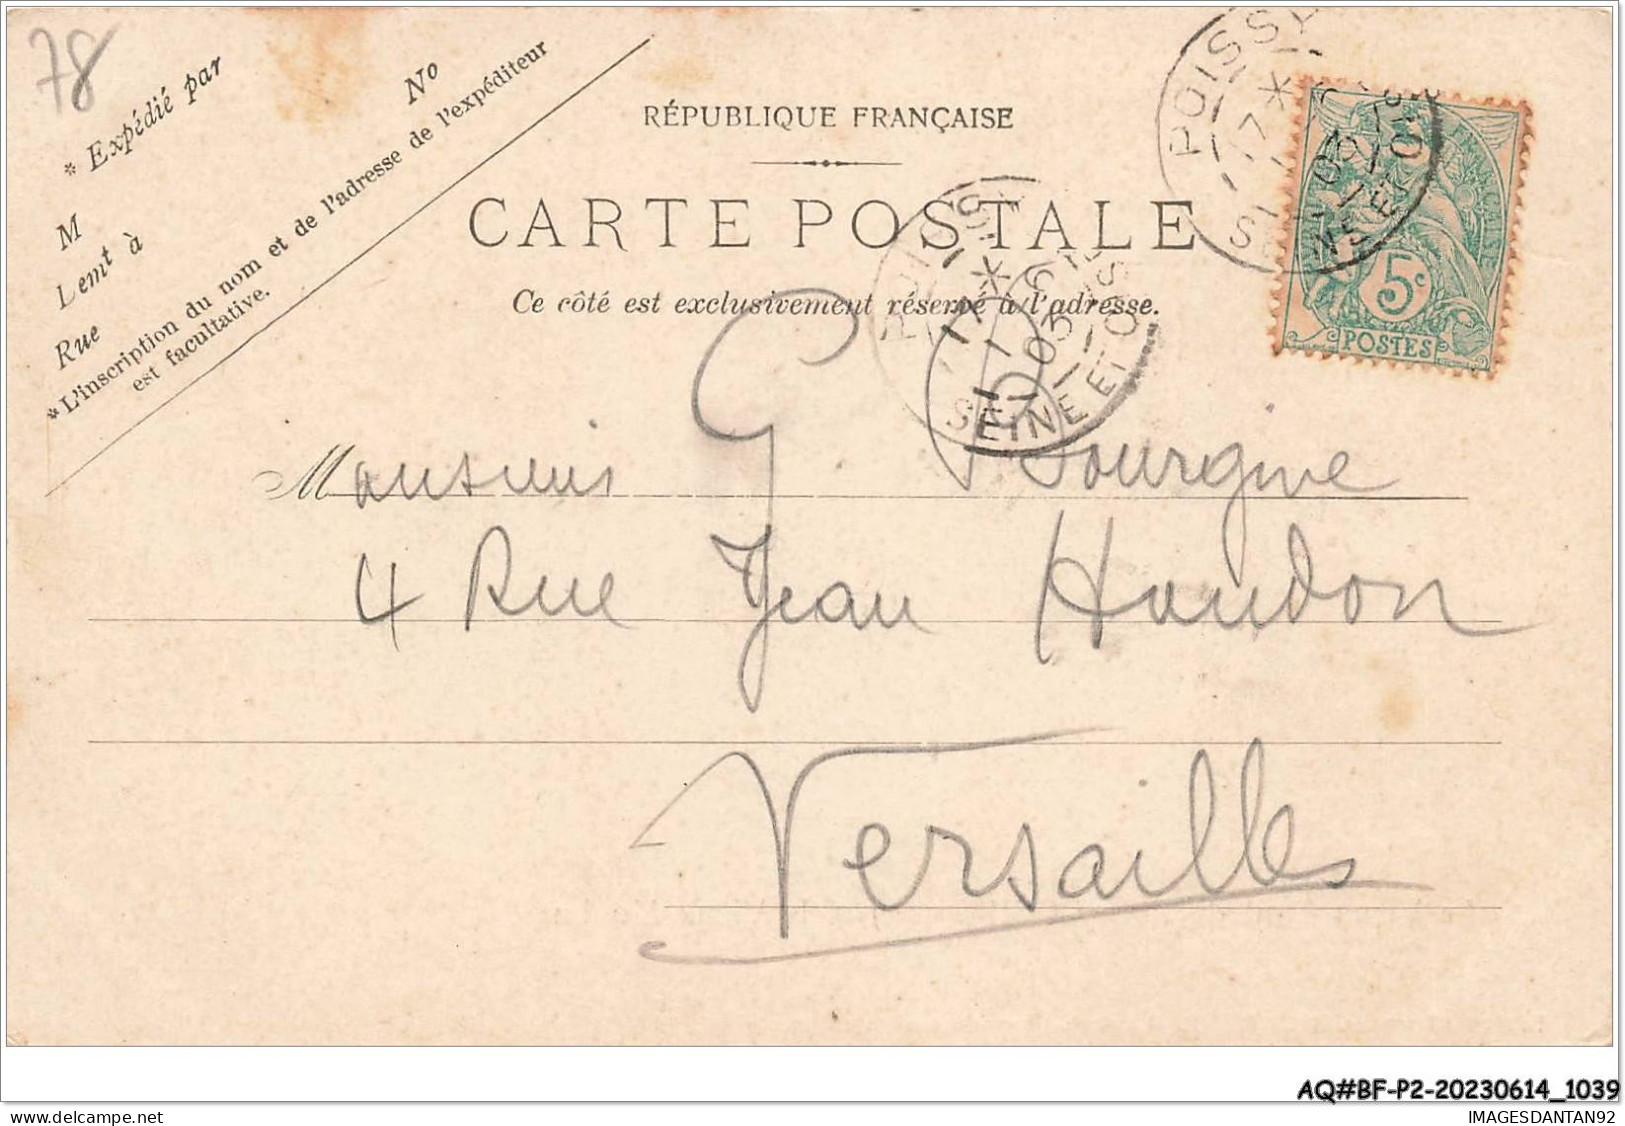 78
* Expédié par
No
M
Lemt à
Rue
* L'inscription du nom et de l'adresse de l'expéditeur
est facultative.
RÉPUBLIQUE FRANÇAISE
CARTE POSTALE
Ce côté est exclusivement réservé à l'adresse.
POISSY
17
03
SEINE ET O
5c
POSTES
SEINE ET OISE
03
Monsieur G Bourgine
4 Rue Jean Houdon
Versailles
AQ#BF-P2-20230614_1039
IMAGESDANTAN92